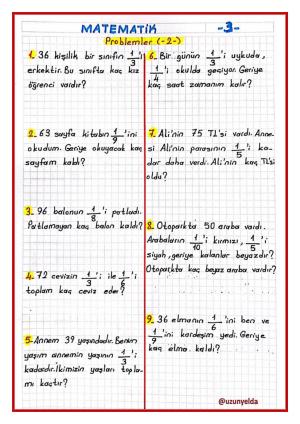 MATEMATİK -3-
Problemler (-2-)
1- 36 kişilik bir sınıfın 1/3'i
erkektir. Bu sınıfta kaç kız
öğrenci vardır?
2- 63 sayfa kitabın 1/9'ini
okudum. Geriye okuyacak kaç
sayfam kaldı?
3- 96 balonun 1/8'i patladı.
Patlamayan kaç balon kaldı?
4- 72 cevizin 1/3'i ile 1/6'i
toplam kaç ceviz eder?
5- Annem 39 yaşındadır. Benim
yaşım annemin yaşının 1/3'i
kadardır. İkimizin yaşları topla-
mı kaçtır?
6- Bir günün 1/3'i uykuda,
1/4'i okulda geçiyor. Geriye
kaç saat zamanım kalır?
7- Ali'nin 75 TL'si vardı. Anne-
si Ali'nin parasının 1/5'i ka-
dar daha verdi. Ali'nin kaç TL'si
oldu?
8- Otoparkta 50 araba vardı.
Arabaların 1/10'i kırmızı, 1/5'i
siyah, geriye kalanlar beyazdır?
Otoparkta kaç beyaz araba vardır?
9- 36 elmanın 1/6'ini ben ve
1/9'ini kardeşim yedi. Geriye
kaç elma kaldı?
@uzunyelda